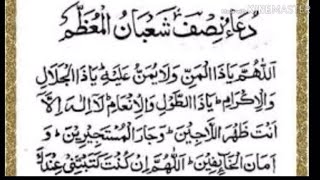 دُعَاءِ نِصْفِ شَعْبَانِ الْمُعَظَّمِ
اَللّٰهُمَّ يَا ذَا الْمَنِّ وَلَا يُمَنُّ عَلَيْهِ ؕ يَا ذَا الْجَلَالِ
وَالْاِكْرَامِ ؕ يَا ذَا الطَّوْلِ وَالْاِنْعَامِ ؕ لَآ اِلٰهَ اِلَّا
اَنْتَ ظَهْرُ اللَّاجِيْنَ ؕ وَجَارُ الْمُسْتَجِيْرِيْنَ ؕ وَ
اَمَانُ الْخَآئِفِيْنَ ؕ اَللّٰهُمَّ اِنْ كُنْتَ كَتَبْتَنِيْ عِنْدَكَ